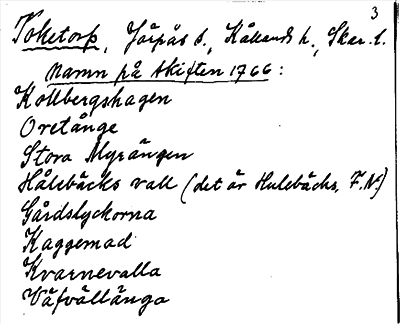 3
Toketorp, Järpås s., Kållands h., Skar. l.
Namn på skiften 1766:
Kollbergshagen
Oretånge
Stora Myrängen
Hålebäcks vall (det är Hulebäcks, F.N.)
Gårdslyckorna
Kaggemad
Kvarnevalla
Väfvältånga